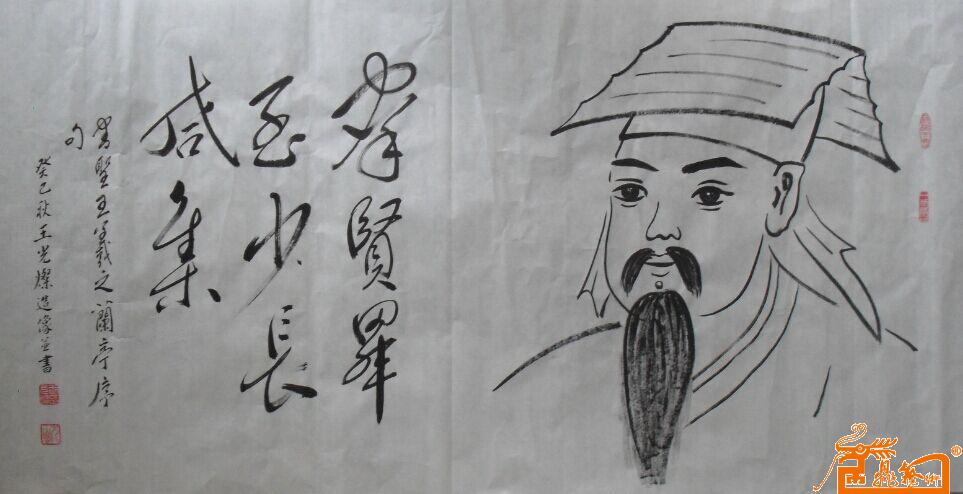 羣賢畢
至少長
咸集
書聖王羲之蘭亭序
句
癸巳秋王光燦造像並書